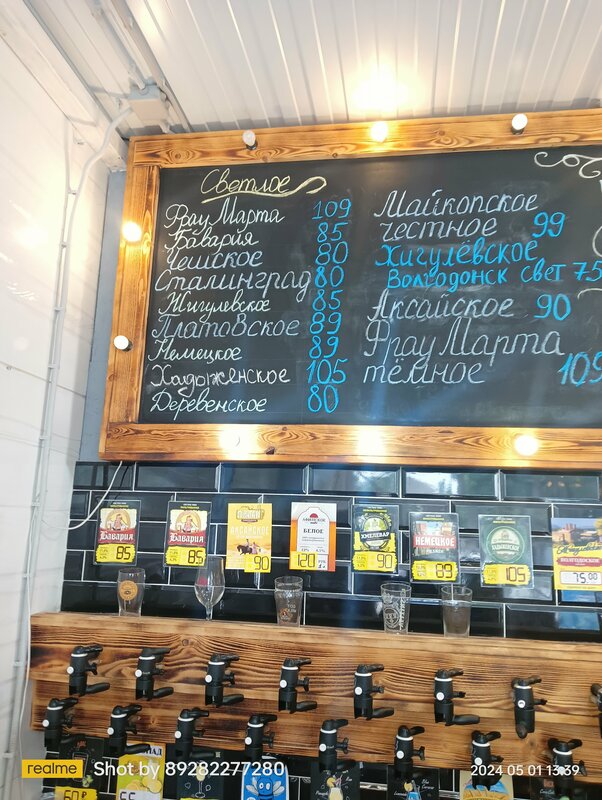 Светлое
Фрау Марта 109
Бавария 85
Чешское 80
Сталинград 80
Жигулевское 85
Платовское 89
Немецкое 89
Хадыженское 105
Деревенское 80
Майкопское
честное 99
Жигулёвское
Волгодонск свет 75
Аксайское 90
Фрау Марта
тёмное 109
Бавария
85
Бавария
85
АКСАЙСКОЕ
90
АФИПСКОЕ
БЕЛОЕ
120
ХМЕЛЕВАР
90
НЕМЕЦКОЕ
89
105
75 00
realme
Shot by 89282277280
2024 05 01 13:39